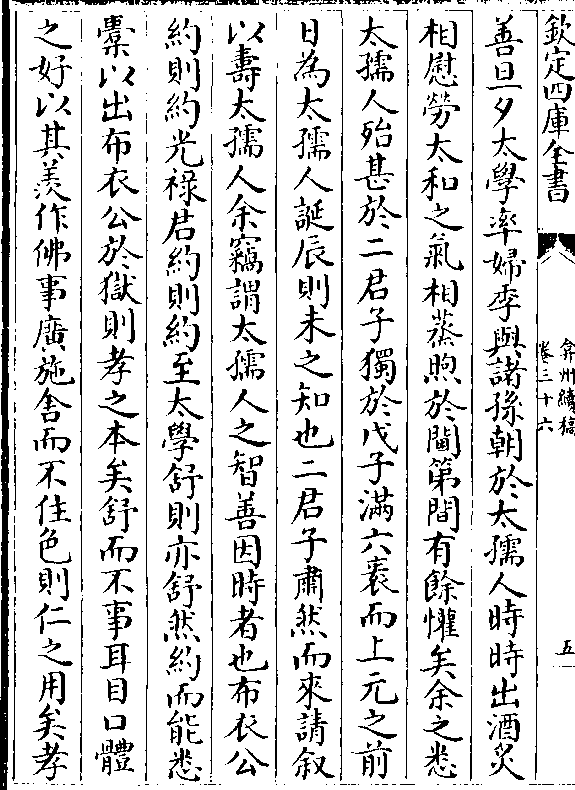 欽定四庫全書
弇州續稿
卷三十六
五
善旦夕太學率婦李與諸孫朝於太孺人時時出酒炙
相慰勞太和之氣相蒸煦於閫第間有餘懽矣余之悉
太孺人殆甚於二君子獨於戊子滿六袠而上元之前
日為太孺人誕辰則未之知也二君子肅然而來請叙
以壽太孺人余竊謂太孺人之智善因時者也布衣公
約則約光祿君約則約至太學舒則亦舒然約而能悉
橐以出布衣公於獄則孝之本矣舒而不事耳目口體
之好以其羨作佛事廣施舍而不住色則仁之用矣孝